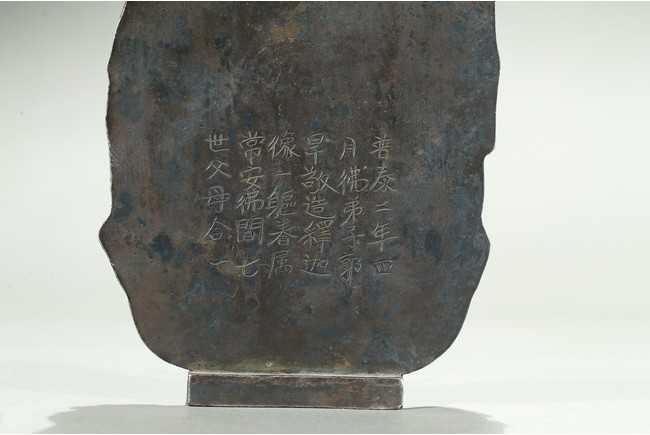 普泰二年四
月彿弟子郭
早敬造釋迦
像一軀春属
常安彿間七
世父母合一